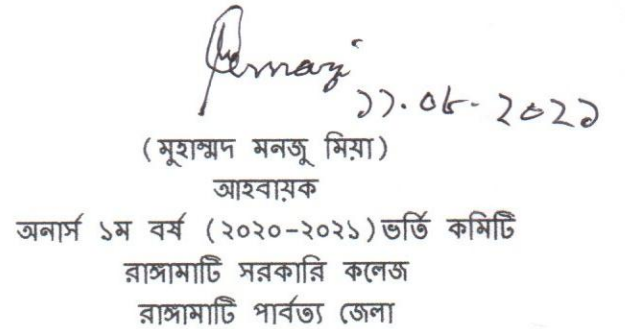 ১১.০৮-২০২১
(মুহাম্মদ মনজু মিয়া)
আহবায়ক
অনার্স ১ম বর্ষ (২০২০-২০২১)ভর্তি কমিটি
রাঙ্গামাটি সরকারি কলেজ
রাঙ্গামাটি পার্বত্য জেলা